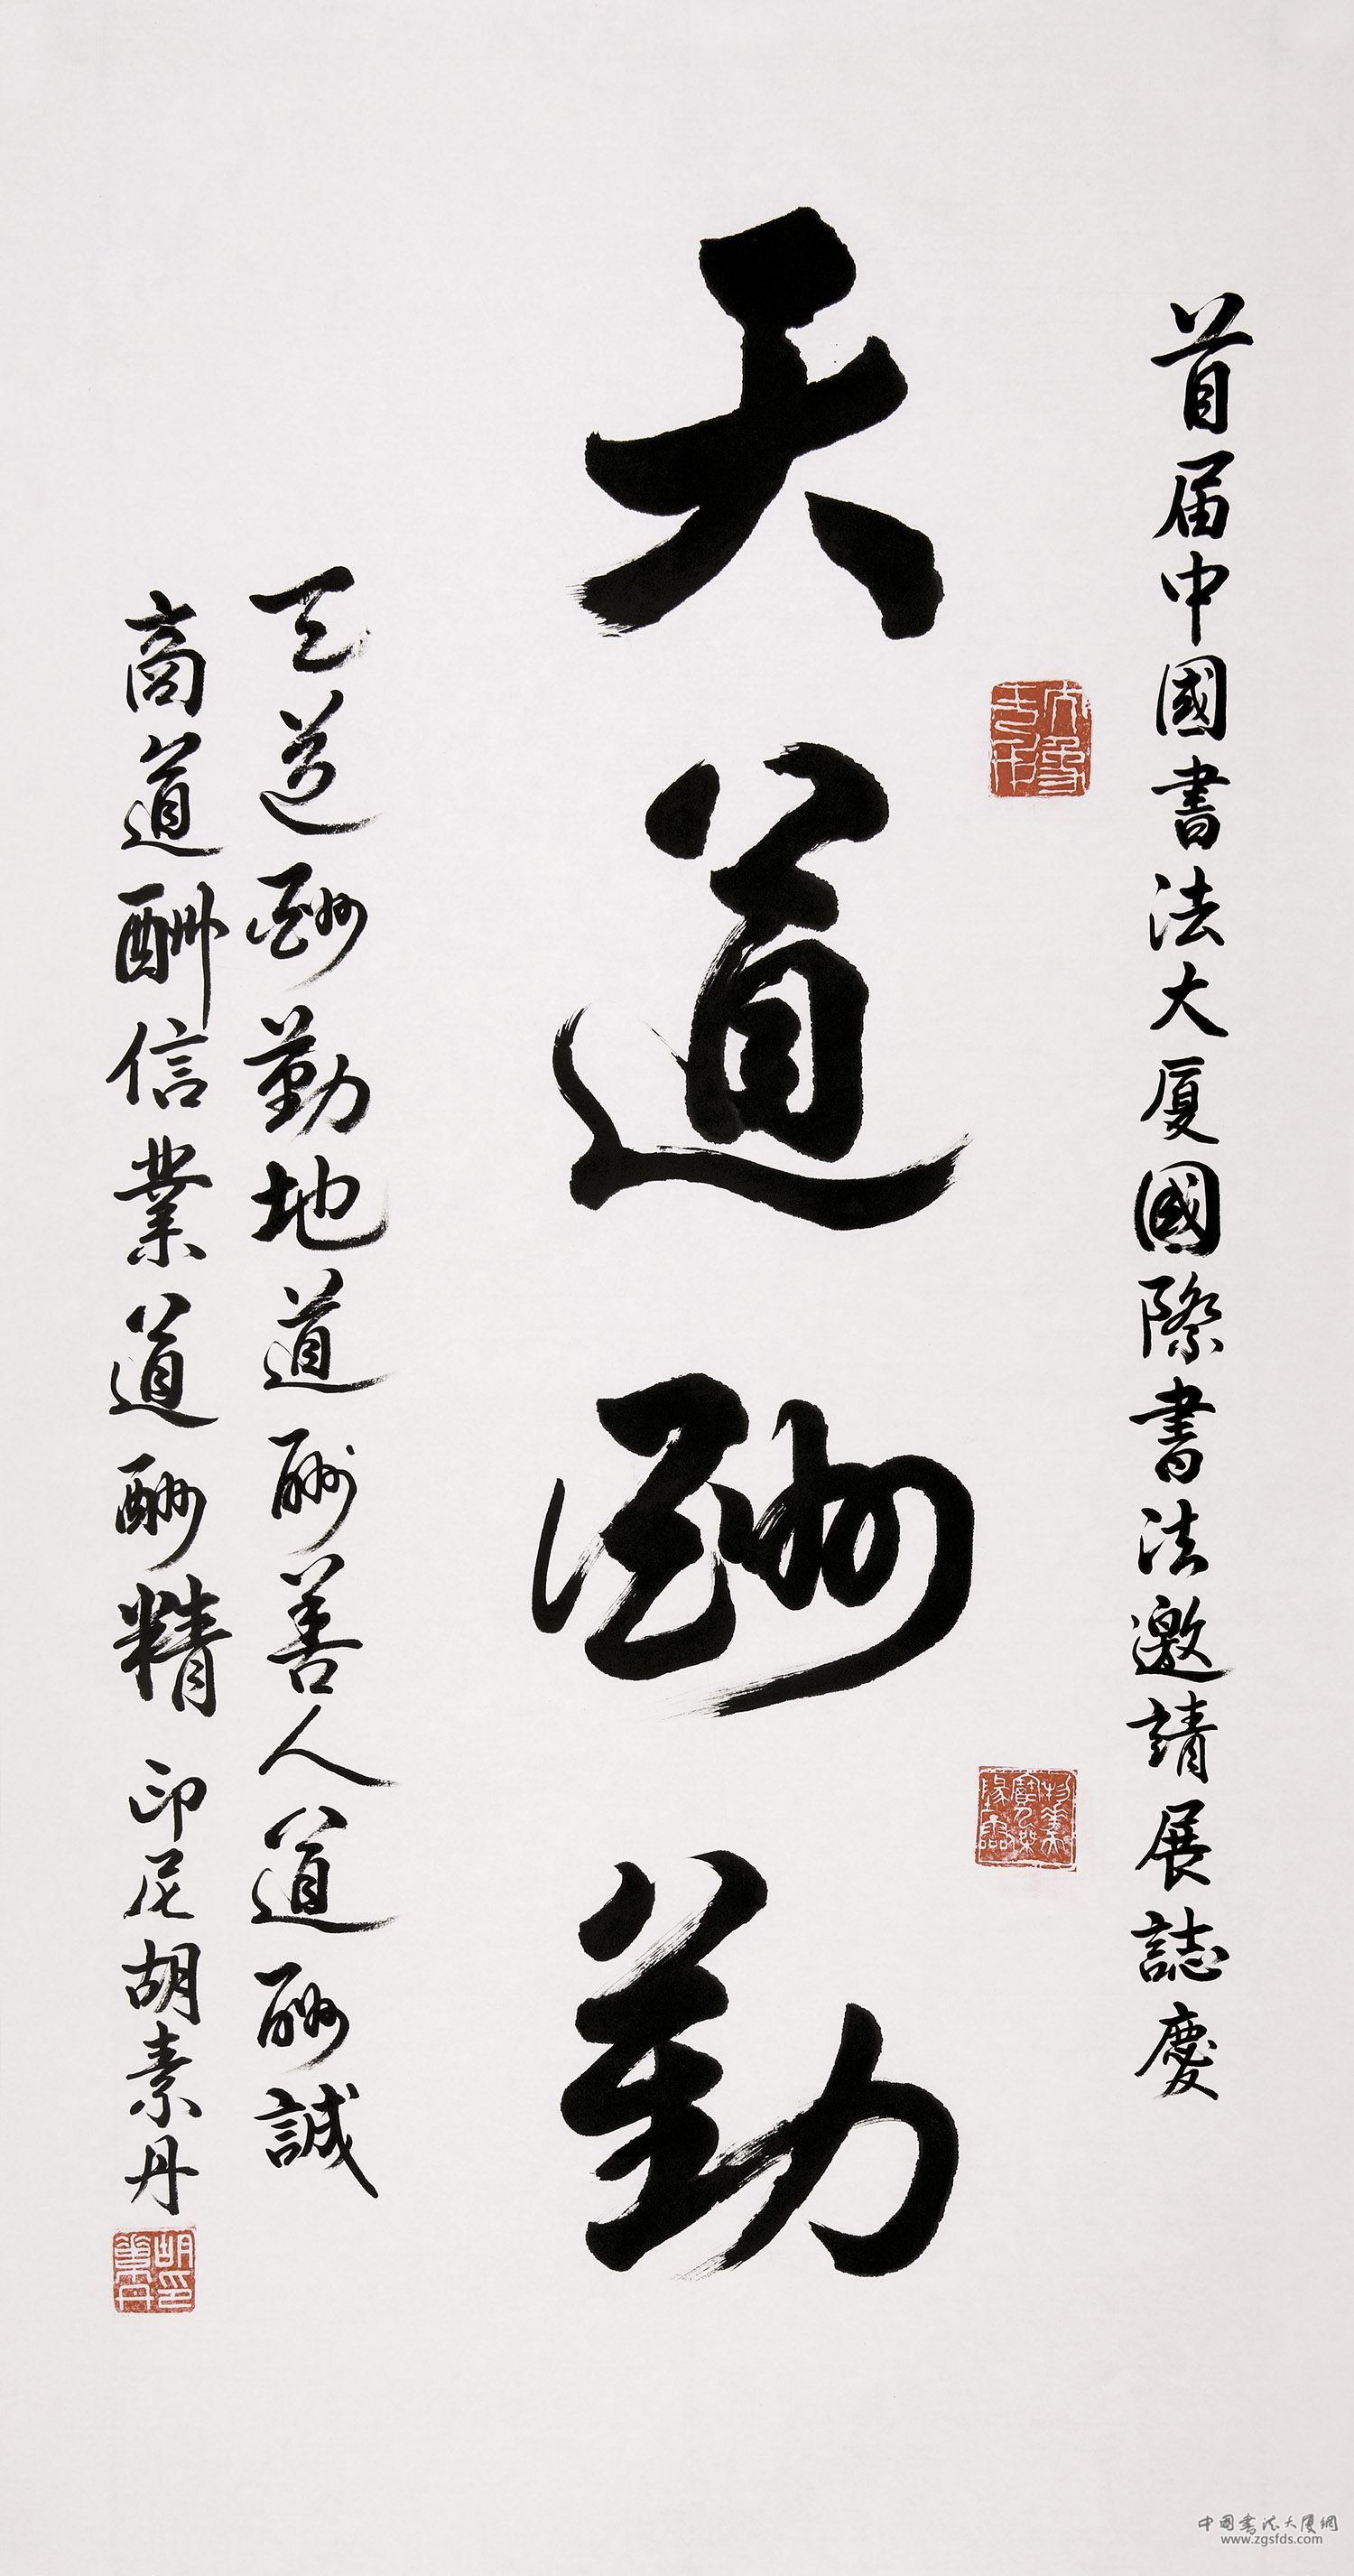 首届中國書法大厦國際書法邀請展誌慶
天道酬勤
天道酬勤地道酬善人道酬誠
商道酬信業道酬精 印尼胡素丹
胡素丹印
中国書法大厦網
www.zgsfds.com